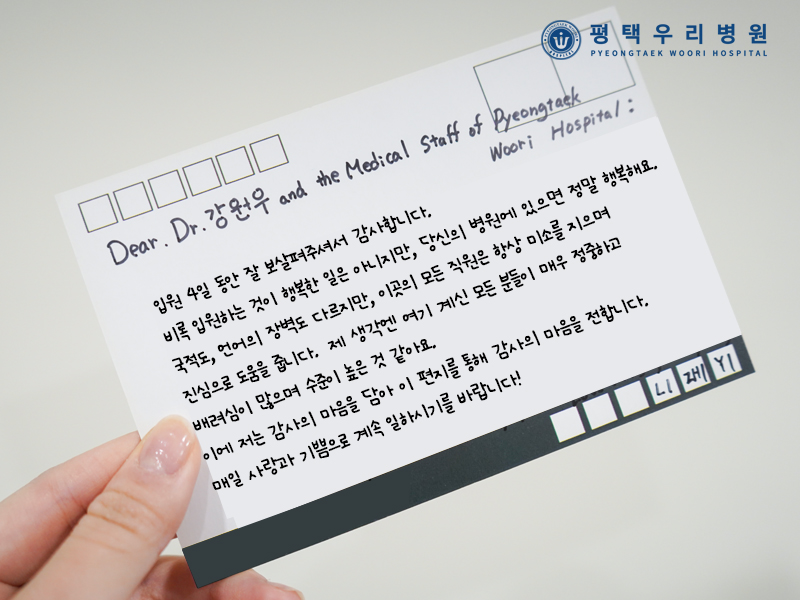 평택우리병원
PYEONGTAEK WOORI HOSPITAL
Dear. Dr.강원우 and the Medical Staff of Pyeongtaek
Woori Hospital:
입원 4일 동안 잘 보살펴주셔서 감사합니다.
비록 입원하는 것이 행복한 일은 아니지만, 당신의 병원에 있으면 정말 행복해요.
국적도, 언어의 장벽도 다르지만, 이곳의 모든 직원은 항상 미소를 지으며
진심으로 도움을 줍니다. 제 생각엔 여기 계신 모든 분들이 매우 정중하고
배려심이 많으며 수준이 높은 것 같아요.
이에 저는 감사의 마음을 담아 이 편지를 통해 감사의 마음을 전합니다.
매일 사랑과 기쁨으로 계속 일하시기를 바랍니다!
LI YI